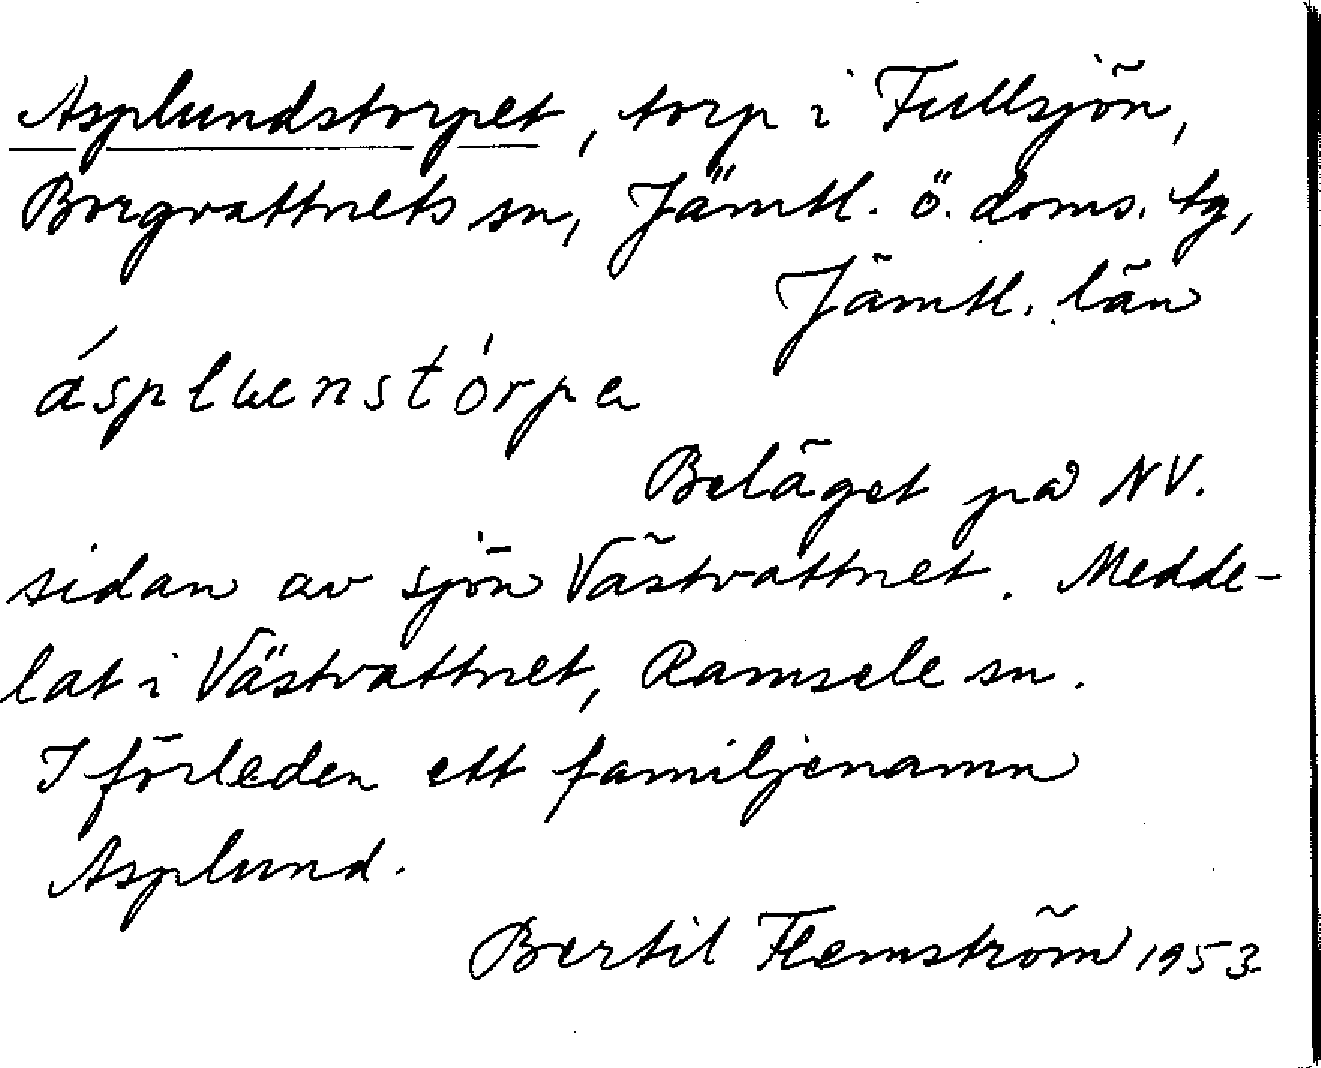 Asplundstorpet, torp i Fullsjön,
Borgvattnets sn, Jämtl. ö. doms. tg,
Jämtl. län
ásplɯenstórpa
Beläget på NV.
sidan av sjön Västvattnet. Medde-
lat i Västvattnet, Ramsele sn.
I förleden ett familjenamn
Asplund.
Bertil Flemström 1953